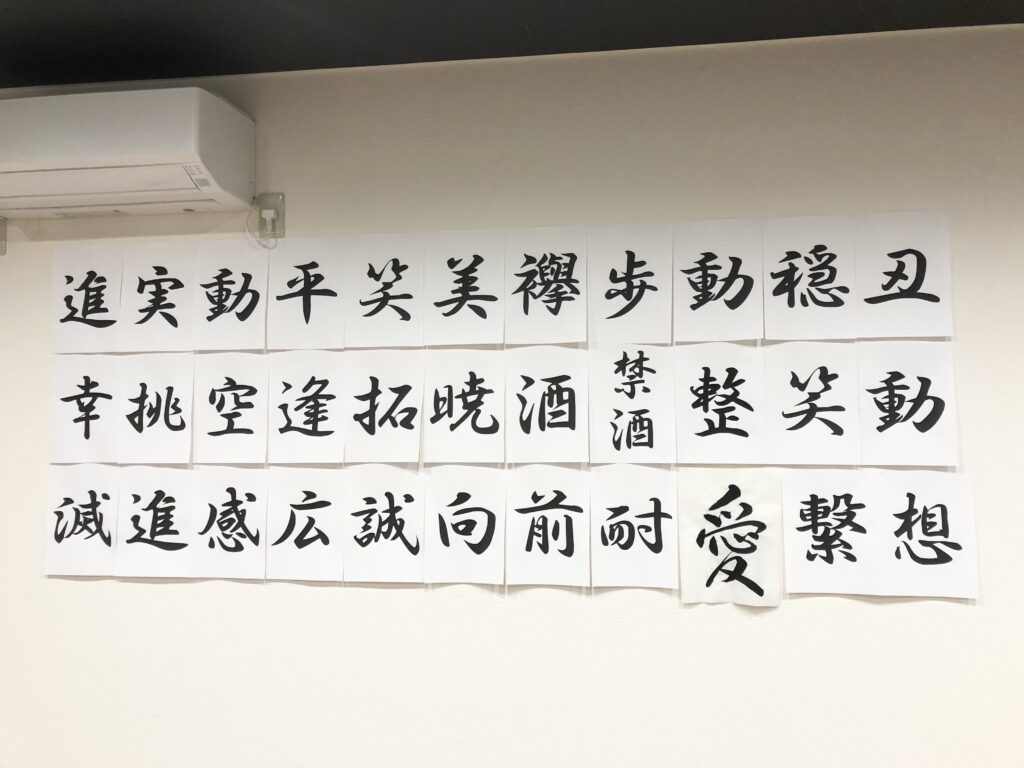 進 実 動 平 笑 美 襷 歩 動 穏 丑
幸 挑 空 逢 拓 暁 酒 禁酒 整 笑 動
滅 進 感 広 誠 向 前 耐 愛 繋 想